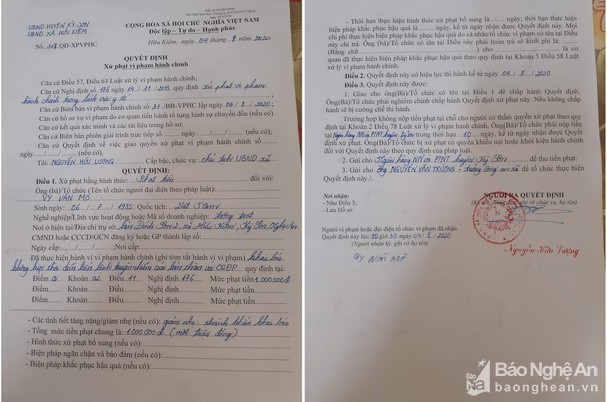 UBND HUYỆN KỲ SƠN
UBND XÃ HỮU KIỆM
CỘNG HÒA XÃ HỘI CHỦ NGHĨA VIỆT NAM
Độc lập – Tự do – Hạnh phúc
Số: QĐ-XPVPHC
Hữu Kiệm, ngày 04 tháng 8 năm 2020
QUYẾT ĐỊNH
Xử phạt vi phạm hành chính
Căn cứ Điều 57, Điều 63 Luật xử lý vi phạm hành chính;
Căn cứ Nghị định số ngày 14/11/ xử phạt vi phạm
hành chính trong lĩnh vực y tế
Căn cứ Biên bản vi phạm hành chính số: 31 BB-VPHC lập ngày 04/8/2020;
Căn cứ hồ sơ vi phạm do cơ quan tiến hành tố tụng hình sự chuyển đến;
Căn cứ kết quả xác minh và các tài liệu trong hồ sơ;
Căn cứ Biên bản phiên giải trình số (nếu có);
Căn cứ Quyết định về việc giao quyền xử phạt vi phạm hành chính số
ngày / / (nếu có);
Tôi: NGUYỄN HỮU LƯỢNG Cấp bậc, chức vụ: chủ tịch UBND xã
QUYẾT ĐỊNH:
Điều 1. Xử phạt bằng hình thức: Phạt tiền đối với:
Ông(bà)/Tổ chức (Tên tổ chức người đại diện theo pháp luật):
VY VĂN MỎ
Sinh ngày: 06/7/1955 Quốc tịch: Việt Nam
Nghề nghiệp/Lĩnh vực hoạt động hoặc Mã số doanh nghiệp:
Nơi ở hiện tại/Địa chỉ trụ sở: bản Đỉnh Sơn 2, xã Hữu Kiệm, Kỳ Sơn, Nghệ An
CMND hoặc CCCD/GCN đăng ký hoặc GP thành lập số:
Ngày cấp: / / Nơi cấp:
Đã thực hiện hành vi vi phạm hành chính (ghi tóm tắt hành vi vi phạm) khai báo
quy định tại:
Điểm Khoản 02 Điều 11 Nghị định 176 Mức phạt tiền 1.000.000đ
Điểm Khoản Điều Nghị định Mức phạt tiền
Điểm Khoản Điều Nghị định Mức phạt tiền
- Các tình tiết tăng nặng/giảm nhẹ (nếu có): giảm nhẹ: thành khẩn khai báo
- Tổng mức tiền phạt chung là: 1.000.000đ (một triệu đồng)
- Hình thức xử phạt bổ sung (nếu có):
- Biện pháp ngăn chặn và bảo đảm (nếu có):
- Biện pháp khắc phục hậu quả (nếu có):
- Thời hạn thực hiện hình thức xử phạt bổ sung là ngày; thời hạn thực hiện
biện pháp khắc phục hậu quả là ngày, kể từ ngày nhận được Quyết định này. Mọi
chi phí thực hiện biện pháp khắc phục hậu quả do cá nhân/tổ chức vi phạm có tên tại Điều
này chi trả. Ông (Bà)/Tổ chức có tên tại Điều này phải hoàn trả số kinh phí là
(Bằng chữ ) là cơ
quan đã thực hiện biện pháp khắc phục hậu quả theo quy định tại Khoản 5 Điều 58 Luật
xử lý vi phạm hành chính.
Điều 2. Quyết định này có hiệu lực thi hành kể từ ngày 04/8/2020
Điều 3. Quyết định này được:
1. Giao cho ông(Bà)/Tổ chức có tên tại Điều 1 để chấp hành Quyết định.
Ông(Bà)/Tổ chức phải nghiêm chỉnh chấp hành Quyết định xử phạt này. Nếu không chấp
hành sẽ bị cưỡng chế thi hành.
Trường hợp không nộp tiền phạt tại chỗ cho người có thẩm quyền xử phạt theo quy
định tại Khoản 2 Điều 78 Luật xử lý vi phạm hành chính, Ông(Bà)/Tổ chức phải nộp tiền
tại Ngân hàng NN&PTNT huyện Kỳ Sơn trong thời hạn 10 ngày, kể từ ngày nhận được Quyết
định xử phạt. Ông(Bà)/Tổ chức bị xử phạt có quyền khiếu nại hoặc khởi kiện hành chính
đối với Quyết định này theo quy định của pháp luật.
2. Gửi cho Ngân hàng NN&PTNT huyện Kỳ Sơn để thu tiền phạt.
3. Gửi cho Ông NGUYỄN VĂN TRƯỜNG - trưởng công an xã để tổ chức thực hiện
Quyết định này./.
Nơi nhận:
- Như Điều 3;
- Lưu Hồ sơ.
NGƯỜI RA QUYẾT ĐỊNH
Nguyễn Hữu Lượng
Người vi phạm hoặc đại diện tổ chức vi phạm đã nhận
Quyết định này lúc 10 giờ 30 ngày 04/8/2020
(Người nhận ký, ghi rõ họ tên)
Vy Văn Mỏ
Báo Nghệ An
baonghean.vn